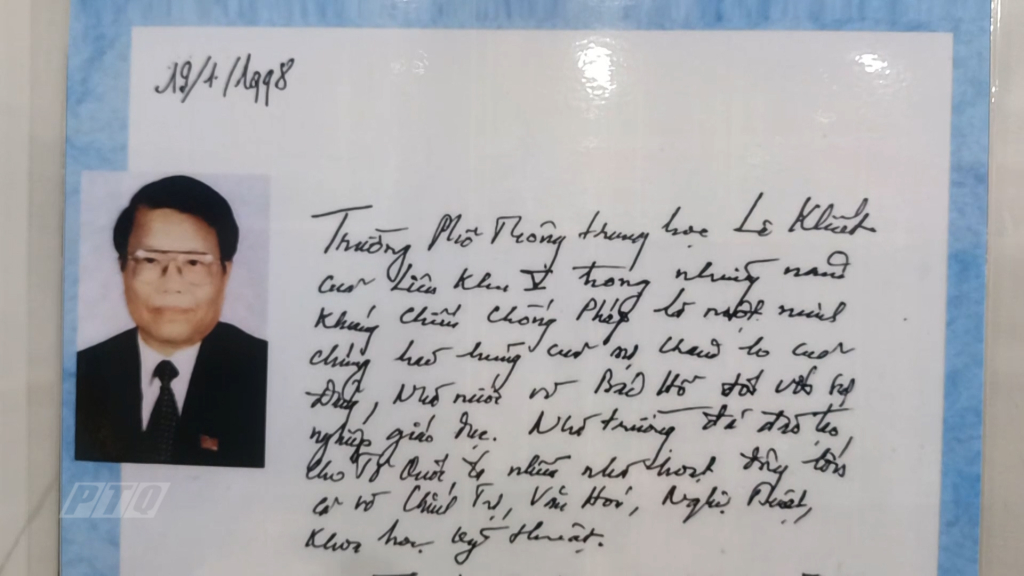 19/4/1998
Trường Phổ Thông trung học Lê Khiết
của Liên Khu V trong những năm
kháng chiến chống Pháp là một minh
chứng hào hùng của sự chăm lo của
Đảng, Nhà nước và Bác Hồ đối với sự
nghiệp giáo dục. Nhà trường đã đào tạo
cho Tổ Quốc ta nhiều nhà hoạt động lớn
cả về Chính Trị, Văn Hoá, Nghệ Thuật,
Khoa học kỹ thuật.
PTQ